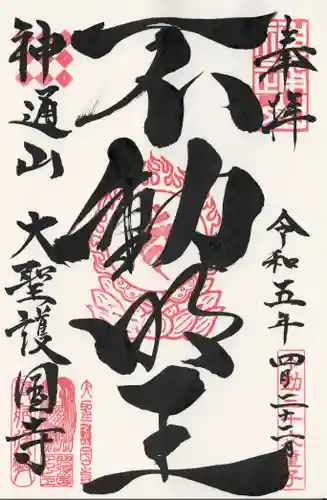 奉拝
令和五年四月二十二日
不動明王
神通山
大聖護国寺